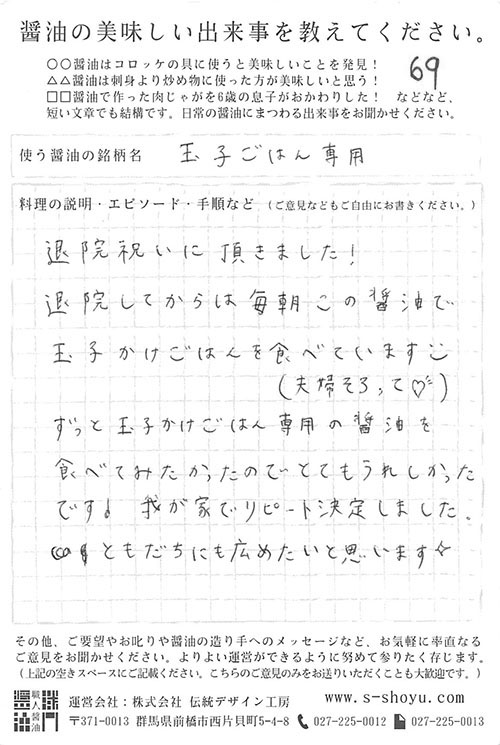 醤油の美味しい出来事を教えてください。
○○醤油はコロッケの具に使うと美味しいことを発見！
△△醤油は刺身より炒め物に使った方が美味しいと思う！
□□醤油で作った肉じゃがを6歳の息子がおかわりした！ などなど、
短い文章でも結構です。日常の醤油にまつわる出来事をお聞かせください。
69
使う醤油の銘柄名 玉子ごはん専用
料理の説明・エピソード・手順など （ご意見などもご自由にお書きください。）
退院祝いに頂きました！
退院してからは毎朝この醤油で
玉子かけごはんを食べています
(夫婦そろって♡)
ずっと玉子かけごはん専用の醤油を
食べてみたかったのでとてもうれしかった
です! 我が家でリピート決定しました。
ともだちにも広めたいと思います☆
その他、ご要望やお叱りや醤油の造り手へのメッセージなど、お気軽に率直なる
ご意見をお聞かせください。よりよい運営ができるように努めて参りたく存じます。
（上記の空きスペースにご記載ください。こちらのご意見のみをお送りいただくことも大歓迎です。）
職人醤油
運営会社：株式会社 伝統デザイン工房 www.s-shoyu.com
〒371-0013 群馬県前橋市西片貝町5-4-8 027-225-0012 027-225-0013